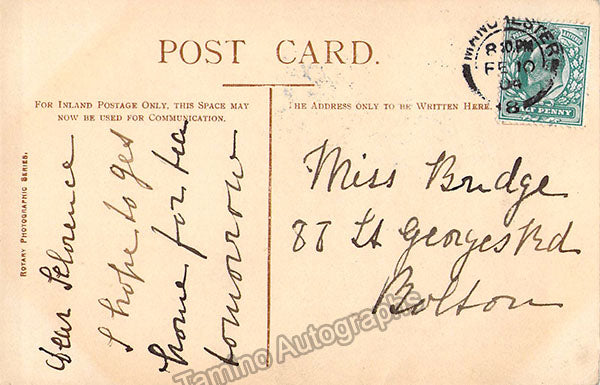 POST CARD.
FOR INLAND POSTAGE ONLY, THIS SPACE MAY
NOW BE USED FOR COMMUNICATION.
THE ADDRESS ONLY TO BE WRITTEN HERE.
ROTARY PHOTOGRAPHIC SERIES.
Dear Florence
I hope to get
home for tea
tomorrow
Miss Bridge
88 St Georges Rd
Bolton
MANCHESTER
FE 10
04
HALF PENNY
Tamino Autographs